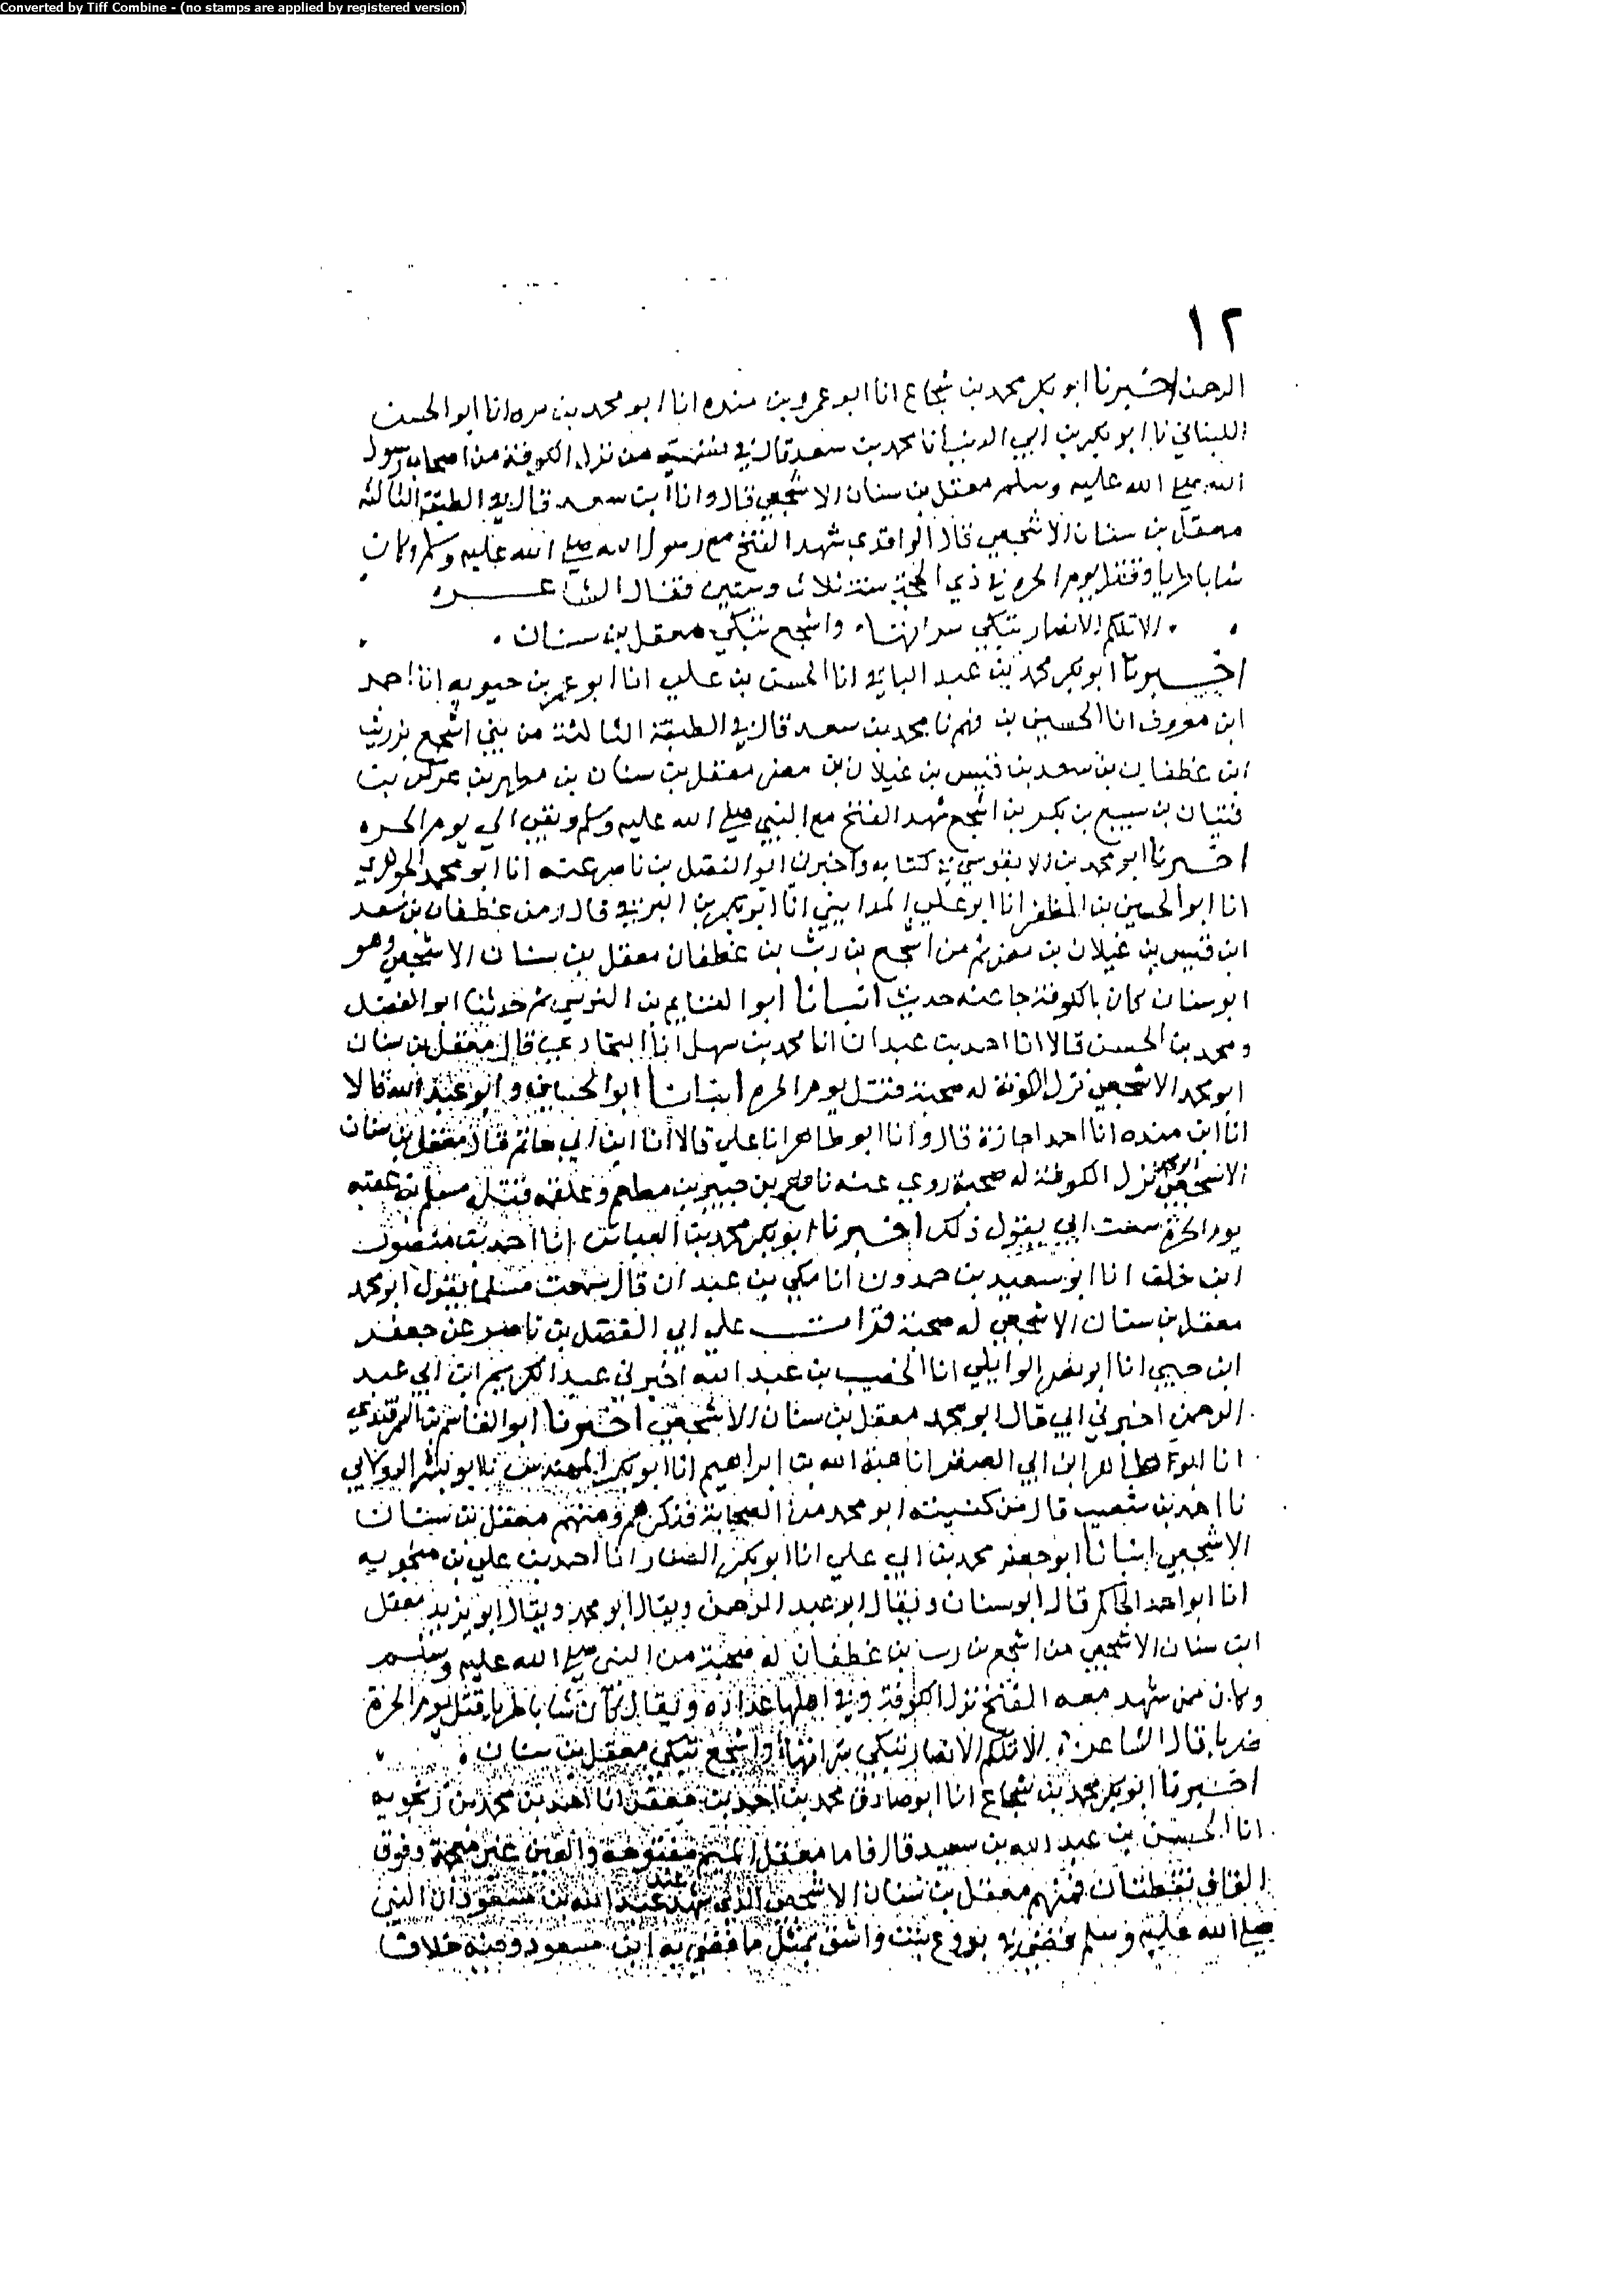 Converted by Tiff Combine - (no stamps are applied by registered version)
١٢
الرحمن اخبرنا ابو بكر محمد بن شجاع انا ابو عمرو بن منده انا ابو محمد بن يوه انا ابو الحسن
اللبناني نا ابو بكر بن ابي الدنيا نا محمد بن سعد قال في تسمية من نزل الكوفة من اصحاب رسول
الله صلى الله عليه وسلم معقل بن سنان الاشجعي قال وانا ابن سعد قال في الطبقة الثالثة
معقل بن سنان الاشجعي قال الواقدي شهد الفتح مع رسول الله صلى الله عليه وسلم وكان
شابا طريا وقتل يوم الحرة في ذي الحجة سنة ثلاث وستين فقال الشاعر
الا تلكم الانصار تبكي سراتها واشجع تبكي معقل بن سنان
اخبرنا ابو بكر محمد بن عبد الباقي انا الحسن بن علي انا ابو عمر بن حيويه انا احمد
ابن معروف انا الحسين بن فهم نا محمد بن سعد قال في الطبقة الثالثة من بني اشجع بن ريث
ابن غطفان بن سعد بن قيس بن غيلان بن مضر معقل بن سنان بن مطهر بن عركي بن
فتيان بن سبيع بن بكر بن اشجع شهد الفتح مع النبي صلى الله عليه وسلم وبقي الى يوم الحره
اخبرنا ابو محمد بن الابنوسي في كتابه واخبرني ابو الفضل بن ناصر عنه انا ابو محمد الجوهري
انا ابو الحسين بن المظفر انا ابو علي المدايني انا ابو بكر بن البرقي قال ومن غطفان بن سعد
ابن قيس بن غيلان بن مضر ثم من اشجع بن ريث بن غطفان معقل بن سنان الاشجعي وهو
ابو سنان كان بالكوفة جا عنه حديث انبانا ابو الغنايم بن النرسي ثم حدثنا ابو الفضل
ومحمد بن الحسن قالا انا احمد بن عبدان انا محمد بن سهل انا البخاري قال معقل بن سنان
ابو محمد الاشجعي نزل الكوفة له صحبة قتل يوم الحره انبانا ابو الحسين وابو عبد الله قالا
انا ابن منده انا احمد اجازة قال وانا ابو طاهر انا علي قالا انا ابن ابي حاتم قال معقل بن سنان
الاشجعي ابو محمد نزل الكوفة له صحبة روي عنه نافع بن جبير بن مطعم وعلقمه قتله مسلم بن عقبه
يوم الحرة سمعت ابي يقول ذلك اخبرنا ابو بكر محمد بن العباس انا احمد بن منصور
ابن خلف انا ابو سعيد بن حمدون انا مكي بن عبدان قال سمعت مسلما يقول ابو محمد
معقل بن سنان الاشجعي له صحبة قرات على ابي الفضل بن ناصر عن جعفر
ابن يحيى انا ابو نصر الوايلي انا الخصيب بن عبد الله اخبرني عبد الكريم بن ابي عبد
الرحمن اخبرني ابي قال ابو محمد معقل بن سنان الاشجعي اخبرنا ابو القاسم بن السمرقندي
انا ابو طاهر ابن ابي الصقر انا هبة الله بن ابراهيم انا ابو بكر المهندس نا ابو بشر الدولابي
نا احمد بن شعيب قال من كنيته ابو محمد من الصحابة فذكرهم ومنهم معقل بن سنان
الاشجعي انبانا ابو جعفر محمد بن ابي علي انا ابو بكر الصفار انا احمد بن علي بن منجويه
انا ابو احمد الحاكم قال ابو سنان ويقال ابو عبد الرحمن ويقال ابو محمد ويقال ابو يزيد معقل
ابن سنان الاشجعي من اشجع بن ريث بن غطفان له صحبة من النبي صلى الله عليه وسلم
وكان ممن شهد معه الفتح نزل الكوفة وفي اهلها عداده ويقال كان شابا طريا قتل يوم الحرة
صبرا قال الشاعر الا تلكم الانصار تبكي سراتها واشجع تبكي معقل بن سنان
اخبرنا ابو بكر محمد بن شجاع انا ابو صادق محمد بن احمد بن جعفر انا احمد بن محمد بن زنجويه
انا الحسن بن عبد الله بن سعيد قال فاما معقل الميم مفتوحة والعين غير معجمة وفوق
القاف نقطتان فمنهم معقل بن سنان الاشجعي الذي شهد عند عبد الله بن مسعود ان النبي
صلى الله عليه وسلم قضى في بروع بنت واشق بمثل ما قضى به ابن مسعود وفيه خلاف